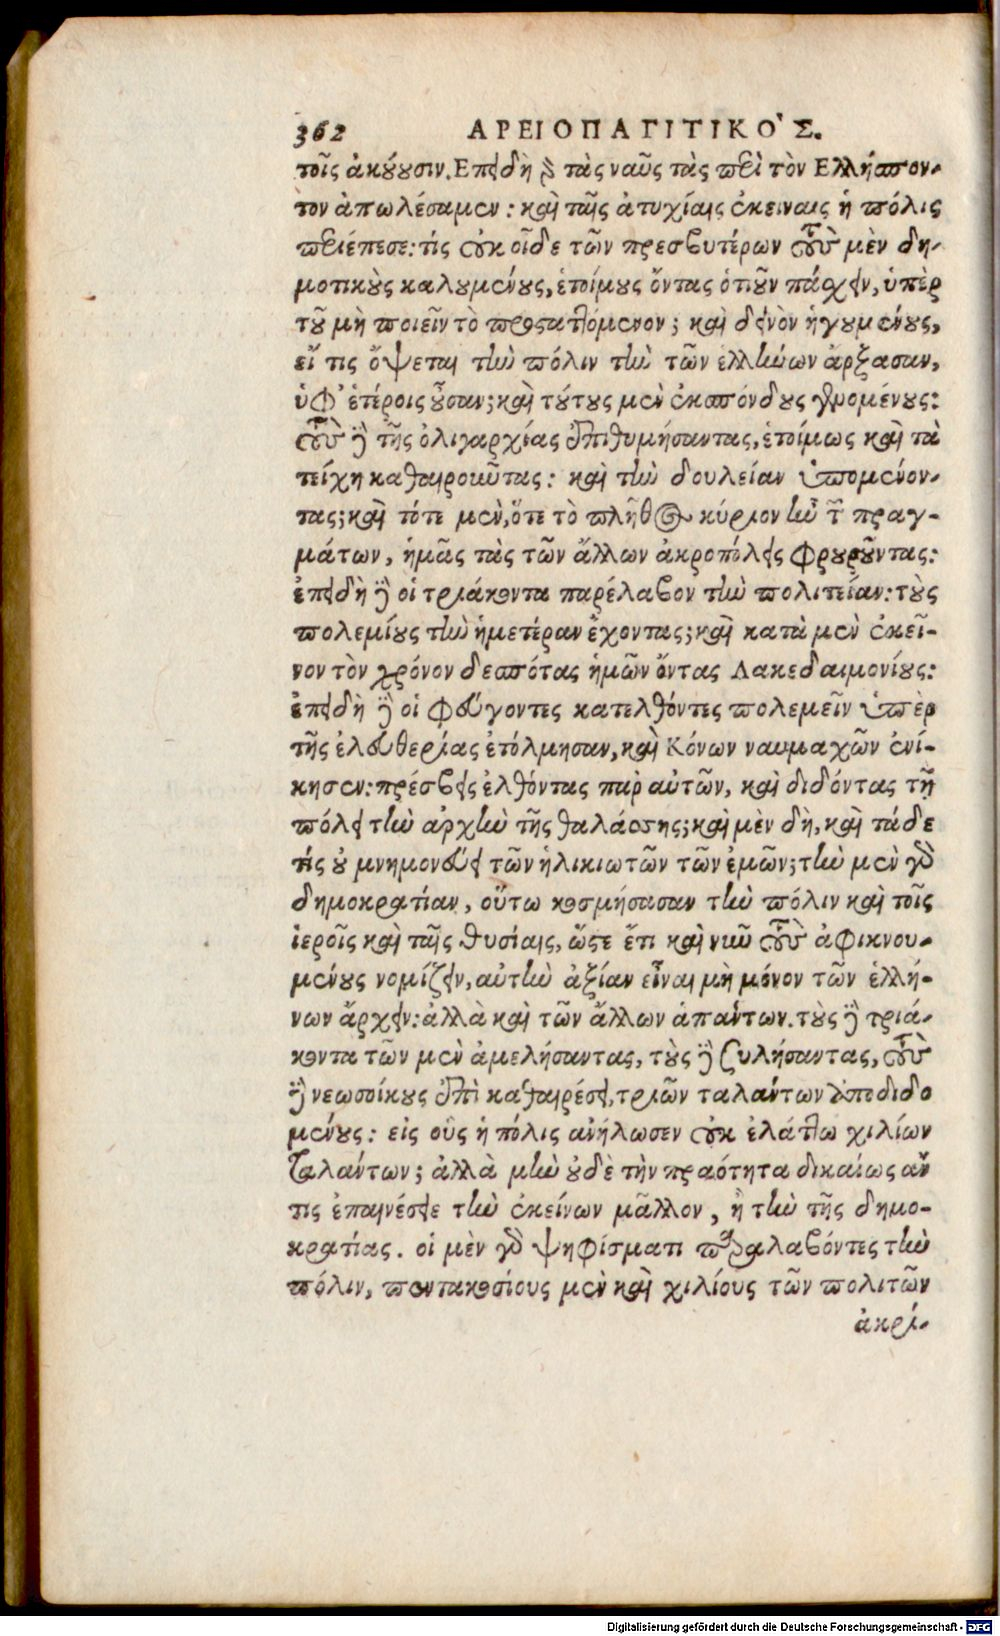 362 ΑΡΕΙΟΠΑΓΙΤΙΚΟ'Σ.
τοῖς ἀκούουσιν. Επειδὴ γὰρ τὰς ναῦς τὰς περὶ τὸν Ελλήσπον-
τον ἀπωλέσαμεν: καὶ ταῖς ἀτυχίαις ἐκειναις ἡ πόλις
περιέπεσε: τίς οὐκ οἶδε τῶν πρεσβυτέρων τοὺς μὲν δη-
μοτικοὺς καλουμένους, ἑτοίμους ὄντας ὁτιοῦν πάσχειν, ὑπὲρ
τοῦ μὴ ποιεῖν τὸ προσταττόμενον; καὶ δεινὸν ἡγουμένους,
εἴ τις ὄψεται τὴν πόλιν τὴν τῶν ἑλλήνων ἄρξασαν,
ὑφ' ἑτέροις οὖσαν; καὶ τούτους μὲν ἐκσπόνδους γενομένους:
τοὺς δὲ τῆς ὀλιγαρχίας ἐπιθυμήσαντας, ἑτοίμως καὶ τὰ
τείχη καθαιροῦντας: καὶ τὴν δουλείαν ὑπομένον-
τας; καὶ τότε μὲν, ὅτε τὸ πλῆθος κύριον ἦν τῶν πραγ-
μάτων, ἡμᾶς τὰς τῶν ἄλλων ἀκροπόλεις φρουροῦντας:
ἐπειδὴ δὲ οἱ τριάκοντα παρέλαβον τὴν πολιτείαν: τοὺς
πολεμίους τὴν ἡμετέραν ἔχοντας; καὶ κατὰ μὲν ἐκεῖ-
νον τὸν χρόνον δεσπότας ἡμῶν ὄντας Λακεδαιμονίους:
ἐπειδὴ δὲ οἱ φεύγοντες κατελθόντες πολεμεῖν ὑπὲρ
τῆς ἐλευθερίας ἐτόλμησαν, καὶ Κόνων ναυμαχῶν ἐνί-
κησεν: πρέσβεις ἐλθόντας παρ αὐτῶν, καὶ διδόντας τῇ
πόλει τὴν αρχὴν τῆς θαλάσσης; καὶ μὲν δὴ, καὶ τάδε
τίς οὐ μνημονεύει τῶν ἡλικιωτῶν τῶν ἐμῶν; τὴν μὲν γὰρ
δημοκρατίαν, οὕτω κοσμήσασαν τὴν πόλιν καὶ τοῖς
ἱεροῖς καὶ ταῖς θυσίαις, ὥστε ἔτι καὶ νῦν τοὺς ἀφικνου-
μένους νομίζειν, αὐτὴν ἀξίαν εἶναι μὴ μόνον τῶν ἑλλή-
νων ἄρχειν: ἀλλὰ καὶ τῶν ἄλλων ἁπάντων. τοὺς δὲ τριά-
κοντα τῶν μὲν ἀμελήσαντας, τοὺς δὲ συλήσαντας, τοὺς
δὲ νεωσοίκους ἐπὶ καθαιρέσει, τριῶν ταλάντων ἀποδιδο
μένους: εἰς οὓς ἡ πόλις ανήλωσεν οὐκ ἐλάττω χιλίων
ταλάντων; ἀλλὰ μὴν οὐδὲ τὴν πραότητα δικαίως αν
τις ἐπαινέσειε τὴν ἐκείνων μᾶλλον, ἢ τὴν τῆς δημο-
κρατίας. οἱ μὲν γὰρ ψηφίσματι παραλαβόντες τὴν
πόλιν, πεντακοσίους μὲν καὶ χιλίους τῶν πολιτῶν
ἀκρί-
Digitalisierung gefördert durch die Deutsche Forschungsgemeinschaft - DFG